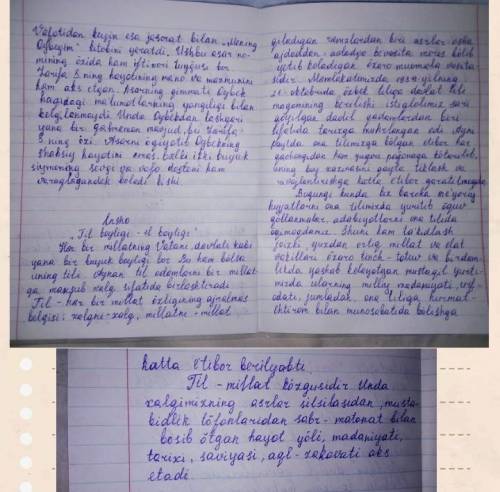 Vafotidan keyin esa jasorat bilan „Mening
Oybegim" kitobini yaratdi. Ushbu asar no-
mining özida ham iftixori tuyğusi bor
Zarifa S.ning hayotining mano va mazmunini
ham aks etgan. Asarning qimmati Oybek
haqidagi malumotlarning yangiligi bilan
belgilanmaydi. Unda Oybekdan tashqari
yana bir qahramon mavjud, bu Zarifa
S.ning özi. Asarni öqiyotib Oybekning
shaxsiy hayotini emas, balki ikki buyuk
siymoning sevgi va vafo dostoni ham
varaqlagandek boladi kishi
Insho
"Til boyligi - el boyligi"
Har bir millatning Vatani davlati kabi
yana bir buyuk boyligi bor Bu ham bolsa
uning tili. Aynan til odamlarni bir millat-
ga maxsub xalq sifatida birlashtiradi
Til - har bir millat özligining ajralmas
belgisi: xalqni-xalq, millatni - millat
qiladigan ramzlardan biri asrlar osha
ajdoddan - avlodga bevosita meros bölib
yetib keladigan özaro muomala vosita-
sidir. Mamlakatimizda 1989-yilning
21-oktabrida, özbek tiliga davlat tili
maqomining berilishi istiqlolimiz sari
qöyilgan dadil qadamlardan biri
sifatida tarixga muhrlangan edi. Ayni
paytda ona tilimizga bölgan etibor har
qachongidan ham yuqori poğonaga kötarilib,
uning boy xazinasini qayta tiklash va
rivojlantirishga katta etibor qaratilmoqda.
Bugungi kunda biz barcha me'yoriy
hujjatlarni ona tilimizda yuritib öquv
qöllanmalar, adabiyotlarni ona tilida
öqimoqdamiz. Shuni ham ta'kidlash
joizki, yuzdan ortiq millat va elat
vakillari özaro tinch - totuv va birdam-
likda yashab kelayotgan mustaqil yurti-
mizda ularning milliy madaniyati, urf-
odati, jumladan, ona tiliga hurmat-
ehtirom bilan munosabatda bolishga
katta etibor berilyabti.
Til - millat közgusidir Unda
xalqimizning asrlar silsilasidan, musta-
bidlik töfonlaridan sabr - matonat bilan
bosib ötgan hayot yöli, madaniyati,
tarixi, saviyasi, aql - zakovati aks
etadi.